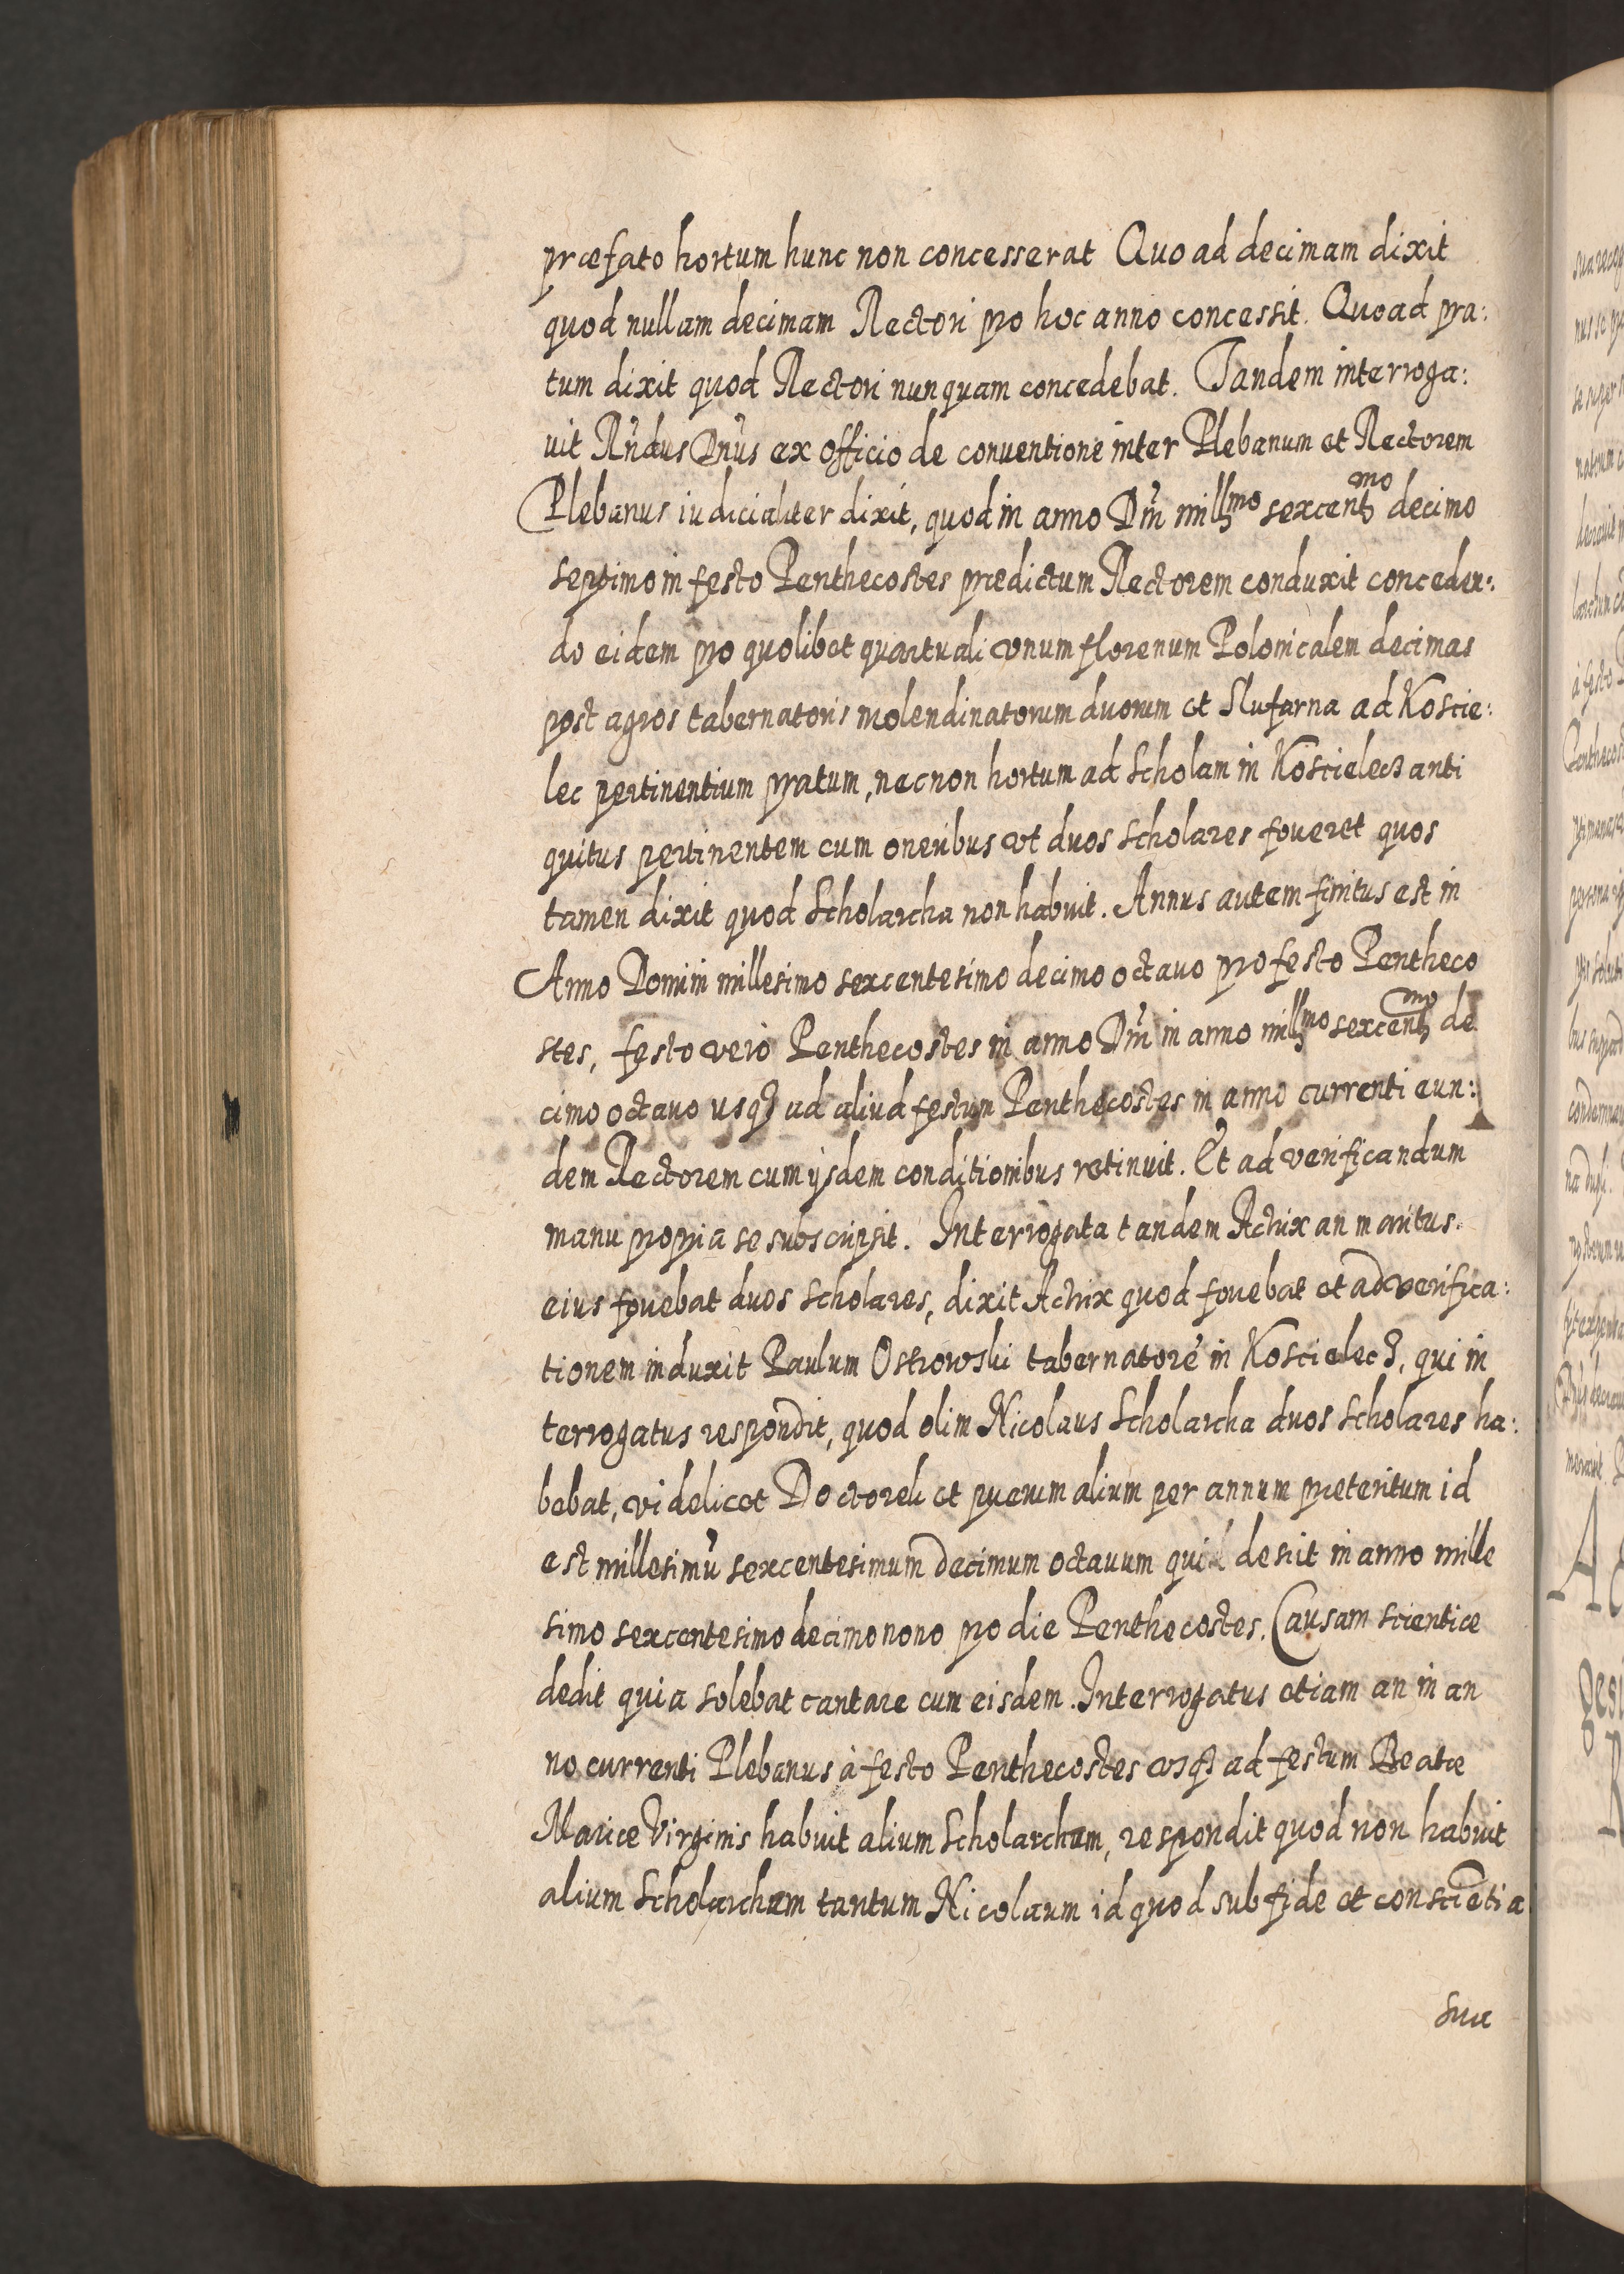 præfato hortum hunc non concesserat Quo ad decimam dixit
quod nullam decimam Rectori pro hoc anno concessit. Quoad pra:
tum dixit quod Rectori nunquam concedebat. Tandem interroga:
uit Rñdus Dñus ex officio de conuentione inter Plebanum et Rectorem
Plebanus iudicialiter dixit, quod in anno Dñi millmo sexcentmo decimo
septimo in festo Penthecostes prædictum Rectorem conduxit conceden:
do eidem pro quolibet quartuali vnum florenum Polonicalem decimas
post agros tabernatoris molendinatorum duorum et Slufarna ad Koscie:
lec pertinentium pratum, necnon hortum ad Scholam in Koscielecz anti
quitus pertinentem cum oneribus vt duos scholares foueret quos
tamen dixit quod Scholarcha non habuit. Annus autem finitus est in
Anno Domini millesimo sexcentesimo decimo octauo pro festo Pentheco
stes, festo vero Penthecostes in anno Dñi in anno millmo sexcentmo de
cimo octauo usq ad aliud festum Penthecostes in anno currenti eun:
dem Rectorem cum ijsdem conditionibus retinuit. Et ad verificandum
manu propria se subscripsit. Interrogata tandem Actrix an maritus
eius fouebat duos scholares, dixit Actrix quod fouebat et ad verifica:
tionem induxit Paulum Ostrowski tabernatorē in Koscielecz, qui in
terrogatus respondit, quod olim Nicolaus Scholarcha duos scholares ha:
bebat, videlicet Doctorek et puerum alium per annum præteritum id
est millesimū sexcentesimum decimum octauum quid desiit in anno mille
simo sexcentesimo decimo nono pro die Penthecostes. Causam scientiæ
dedit quia solebat cantare cum eisdem. Interrogatus etiam an in an
no currenti Plebanus à festo Penthecostes vsq ad festum Beatæ
Mariæ Virginis habuit alium Scholarcham, respondit quod non habuit
alium Scholarcham tantum Nicolaum id quod sub fide et consciētia
sua